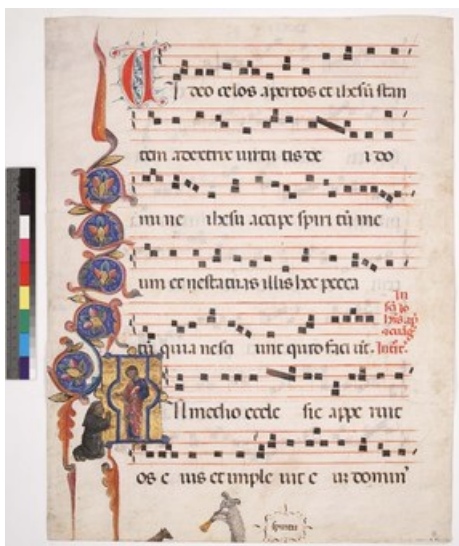 Uideo celos apertos et ihesū stan
tem a dextris uirtu tis de i do
mi ne ihesu accipe spiri tū me
um et ne statuas illis hoc pecca
tū quia nesci unt quid faci ūt.
In medio eccle sie appe ruit
os e ius et imple uit e ū domin'
spiritu